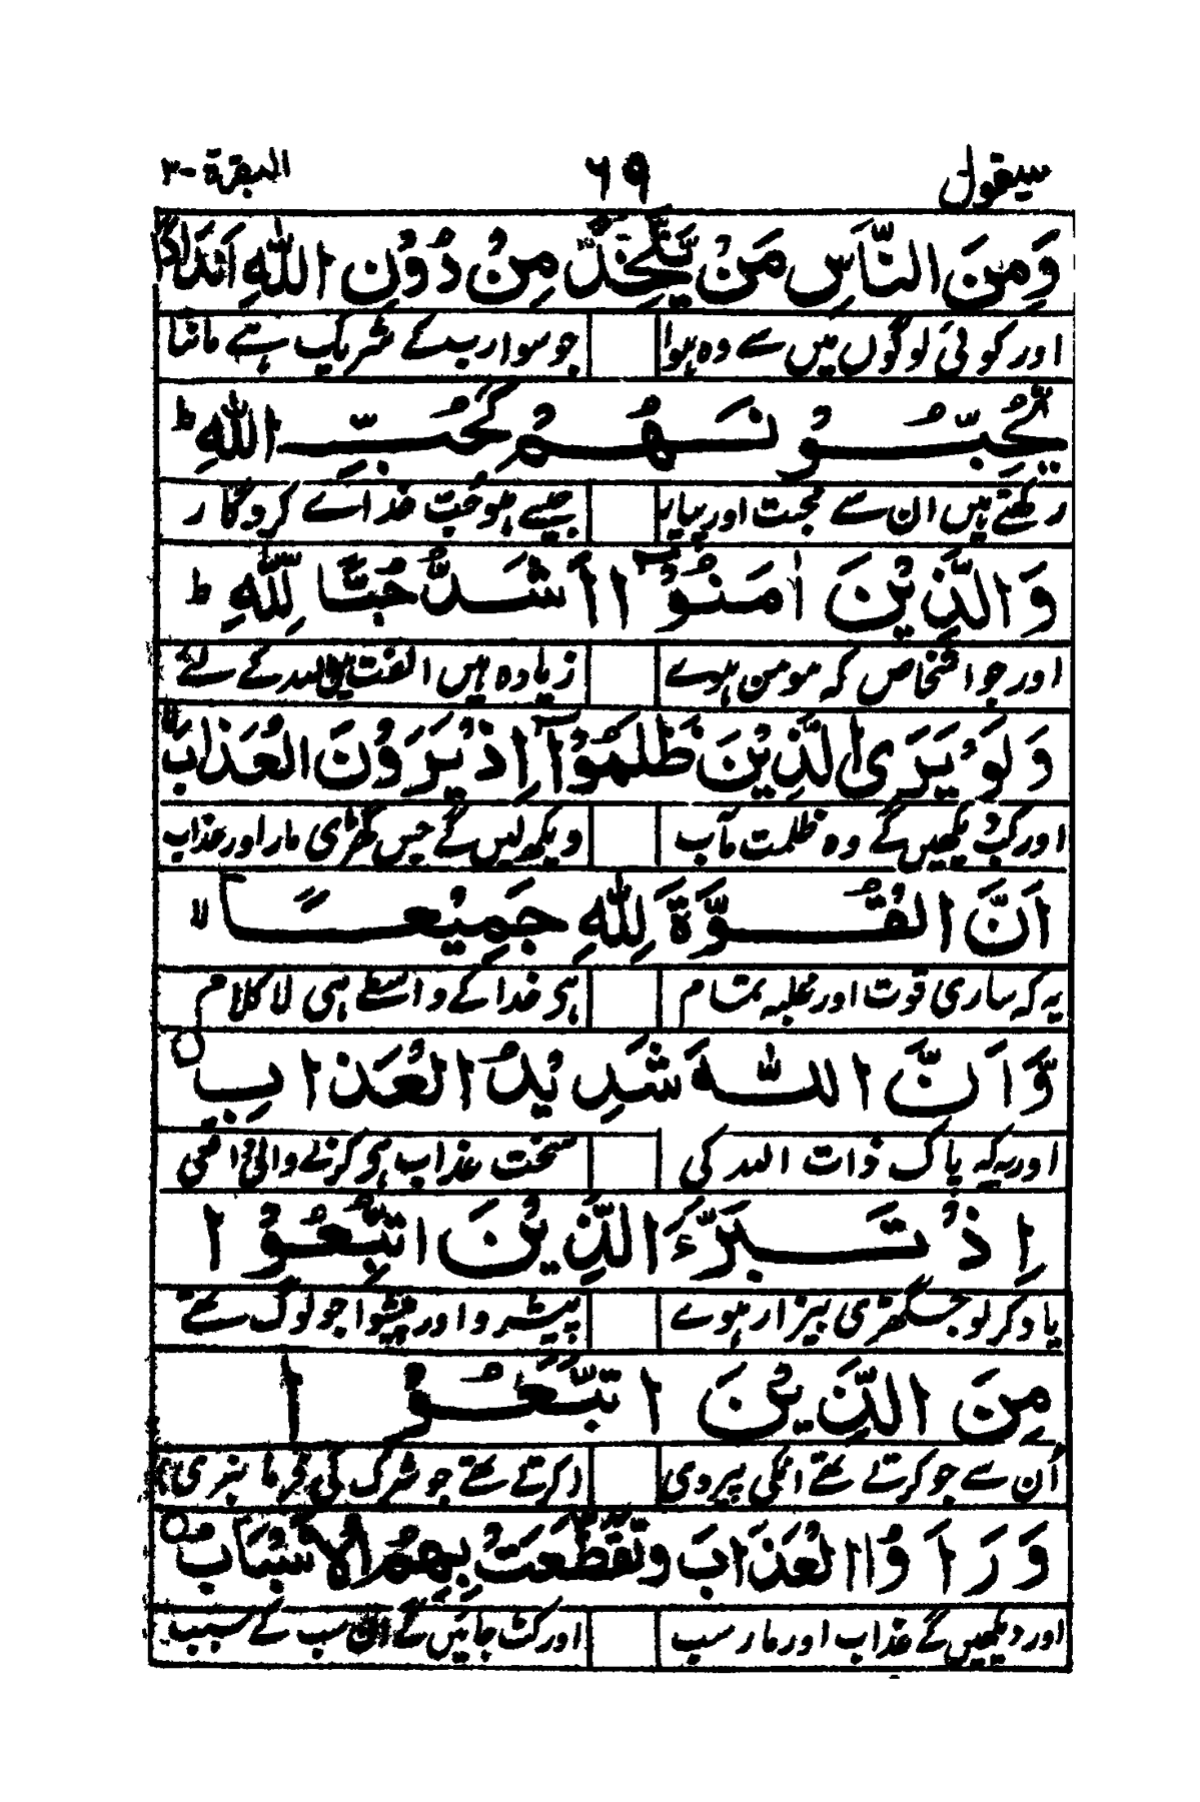 سیقول ٦٩ البقرة-٣
وَمِنَ النَّاسِ مَنْ يَّتَّخِذُ مِنْ دُوْنِ اللهِ اَنْدَادًا
اور کوئی لوگوں میں سے وہ ہوا جو سوا رب کے شریک ہے مانتا
يُّحِبُّوْنَهُمْ كَحُبِّ اللهِ ؕ
رکھتے ہیں ان سے محبت اور پیار جیسے ہو حُبّ خداے کردگار
وَالَّذِيْنَ اٰمَنُوْٓا اَشَدُّ حُبًّا لِّلّٰهِ ؕ
اور جو اشخاص کہ مومن ہوے زیادہ ہیں الفت میں اللہ کے لئے
وَلَوْ يَرَى الَّذِيْنَ ظَلَمُوْٓا اِذْ يَرَوْنَ الْعَذَابَ ۙ
اور کب دیکھیں گے وہ ظلمت مآب دیکھ لیں گے جس گھڑی مار اور عذاب
اَنَّ الْقُوَّةَ لِلّٰهِ جَمِيْعًا ۙ
یہ کہ ساری قوت اور غلبہ تمام ہی خدا کے واسطے ہی لا کلام
وَّاَنَّ اللهَ شَدِيْدُ الْعَذَابِ ○
اور یہ کہ پاک ذات اللہ کی سخت عذاب ہی کرنے والی
اِذْ تَبَرَّءَ الَّذِيْنَ اتُّبِعُوْا
یاد کر لو جس گھڑی بیزار ہوے پیشرو اور پیشوا جو لوگ تھے
مِنَ الَّذِيْنَ اتَّبَعُوْا
اُن سے جو کرتے تھے انکی پیروی کرتے تھے جو شرک کی
وَرَاَوُا الْعَذَابَ وَتَقَطَّعَتْ بِهِمُ الْاَسْبَابُ ○
اور دیکھیں گے عذاب اور مار سب اور کٹ جائیں گے سب کے سبب